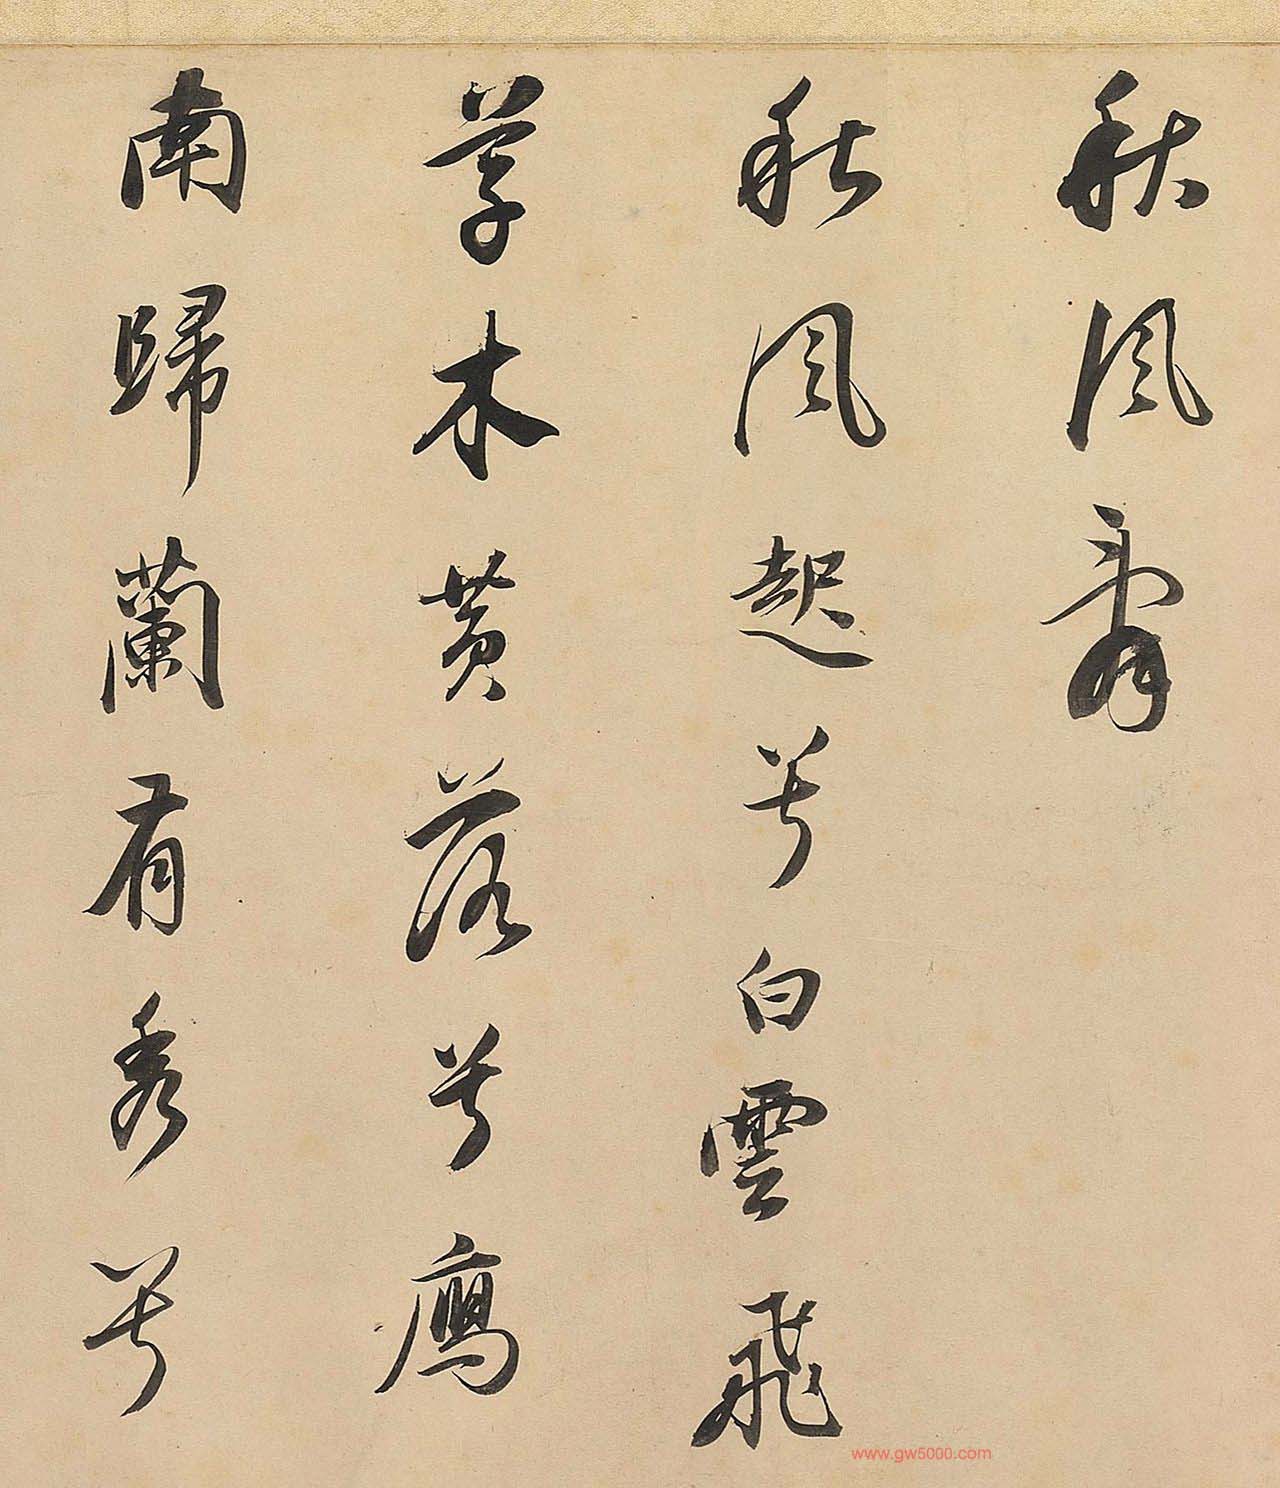 秋風辭
秋風起兮白雲飛
草木黄落兮鴈
南歸蘭有秀兮
www.gw5000.com